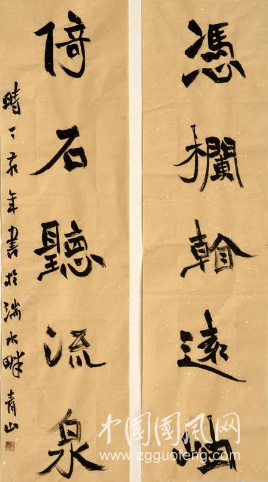 憑欄遠岫
倚石聽流泉
時丁亥年書於湍水畔青山
中国国风网
www.zgguofeng.com